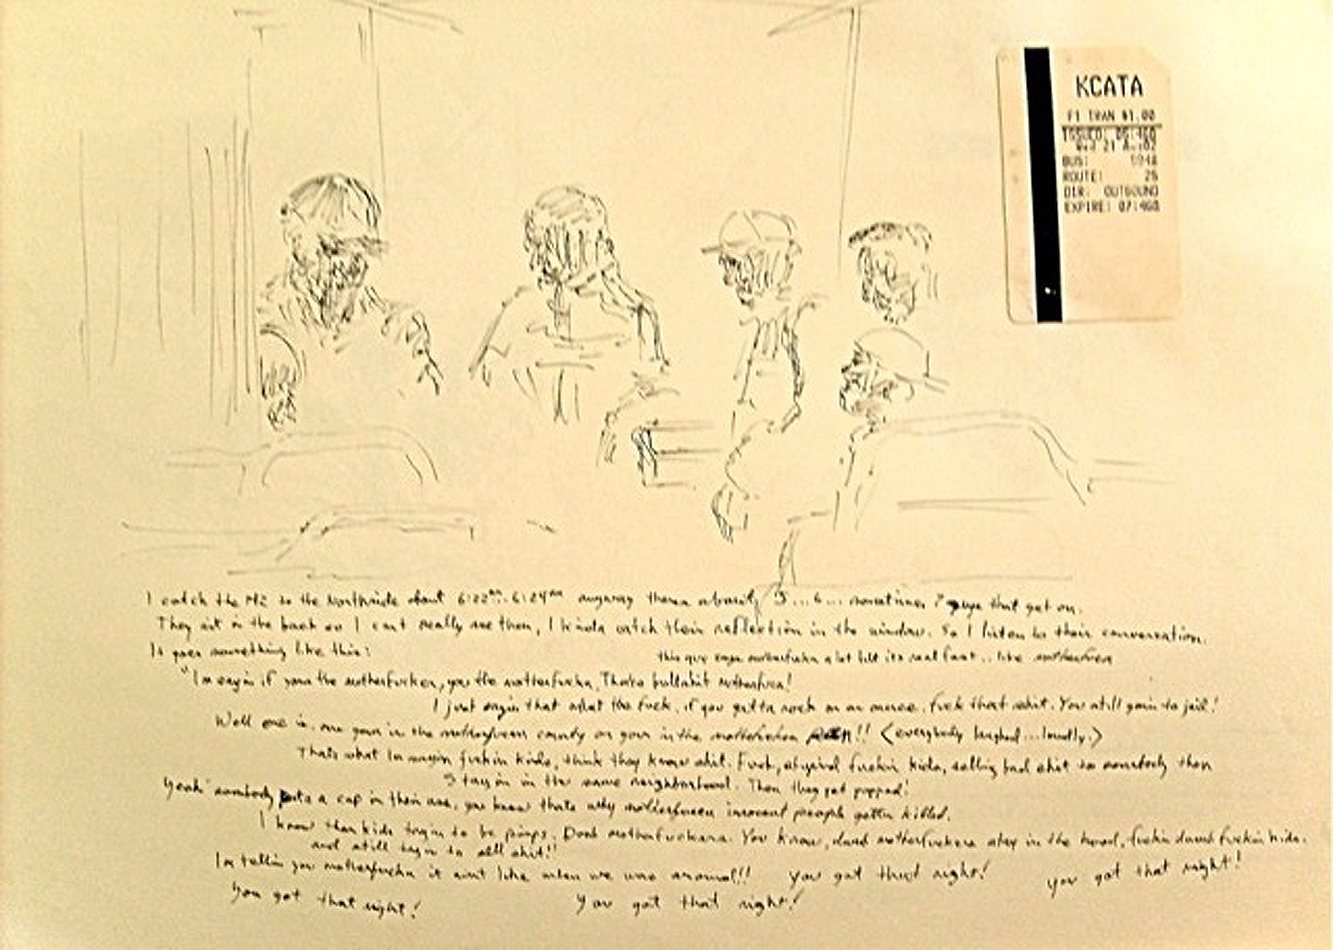 KCATA
F1 TRAN $1.00
ISSUED: 05:46
Wed 21 A 02
BUS:
ROUTE: 25
DIR: OUTBOUND
EXPIRE: 07:46
I catch the to the Northside about 6:22am-6:24am anyway theres 5...6... sometimes 7 guys that get on.
They sit in the back so I can't really see them, I kinda catch their reflection in the window. So I listen to their conversation.
It goes something like this:
this guy says motherfucka a lot but its real fast.. like
"Im sayin if your the motherfucker, you the motherfucka, Thats bullshit
I just sayin that what the fuck, if you gotta rock on an ounce, fuck that shit. You still goin to jail!
Well one is, one your in the county or your in the !! (everybody laughed...loudly.)
Thats what Im sayin fuckin kids, think they know shit. Fuck, stupid fuckin kids, selling bad shit to somebody then
Stayin in the same neighborhood. Then they get popped!
Yeah somebody puts a cap in their ass, you know thats why innocent people gettin killed.
I know than kids tryin to be pimps. Dumb motherfuckers. You know, dumb motherfuckers stay in the hood, fuckin dumb fuckin kids.
and still tryin to sell shit!!
Im tellin you motherfucka it aint like when we was around!! You got that right! You got that right!
You got that right! You got that right!